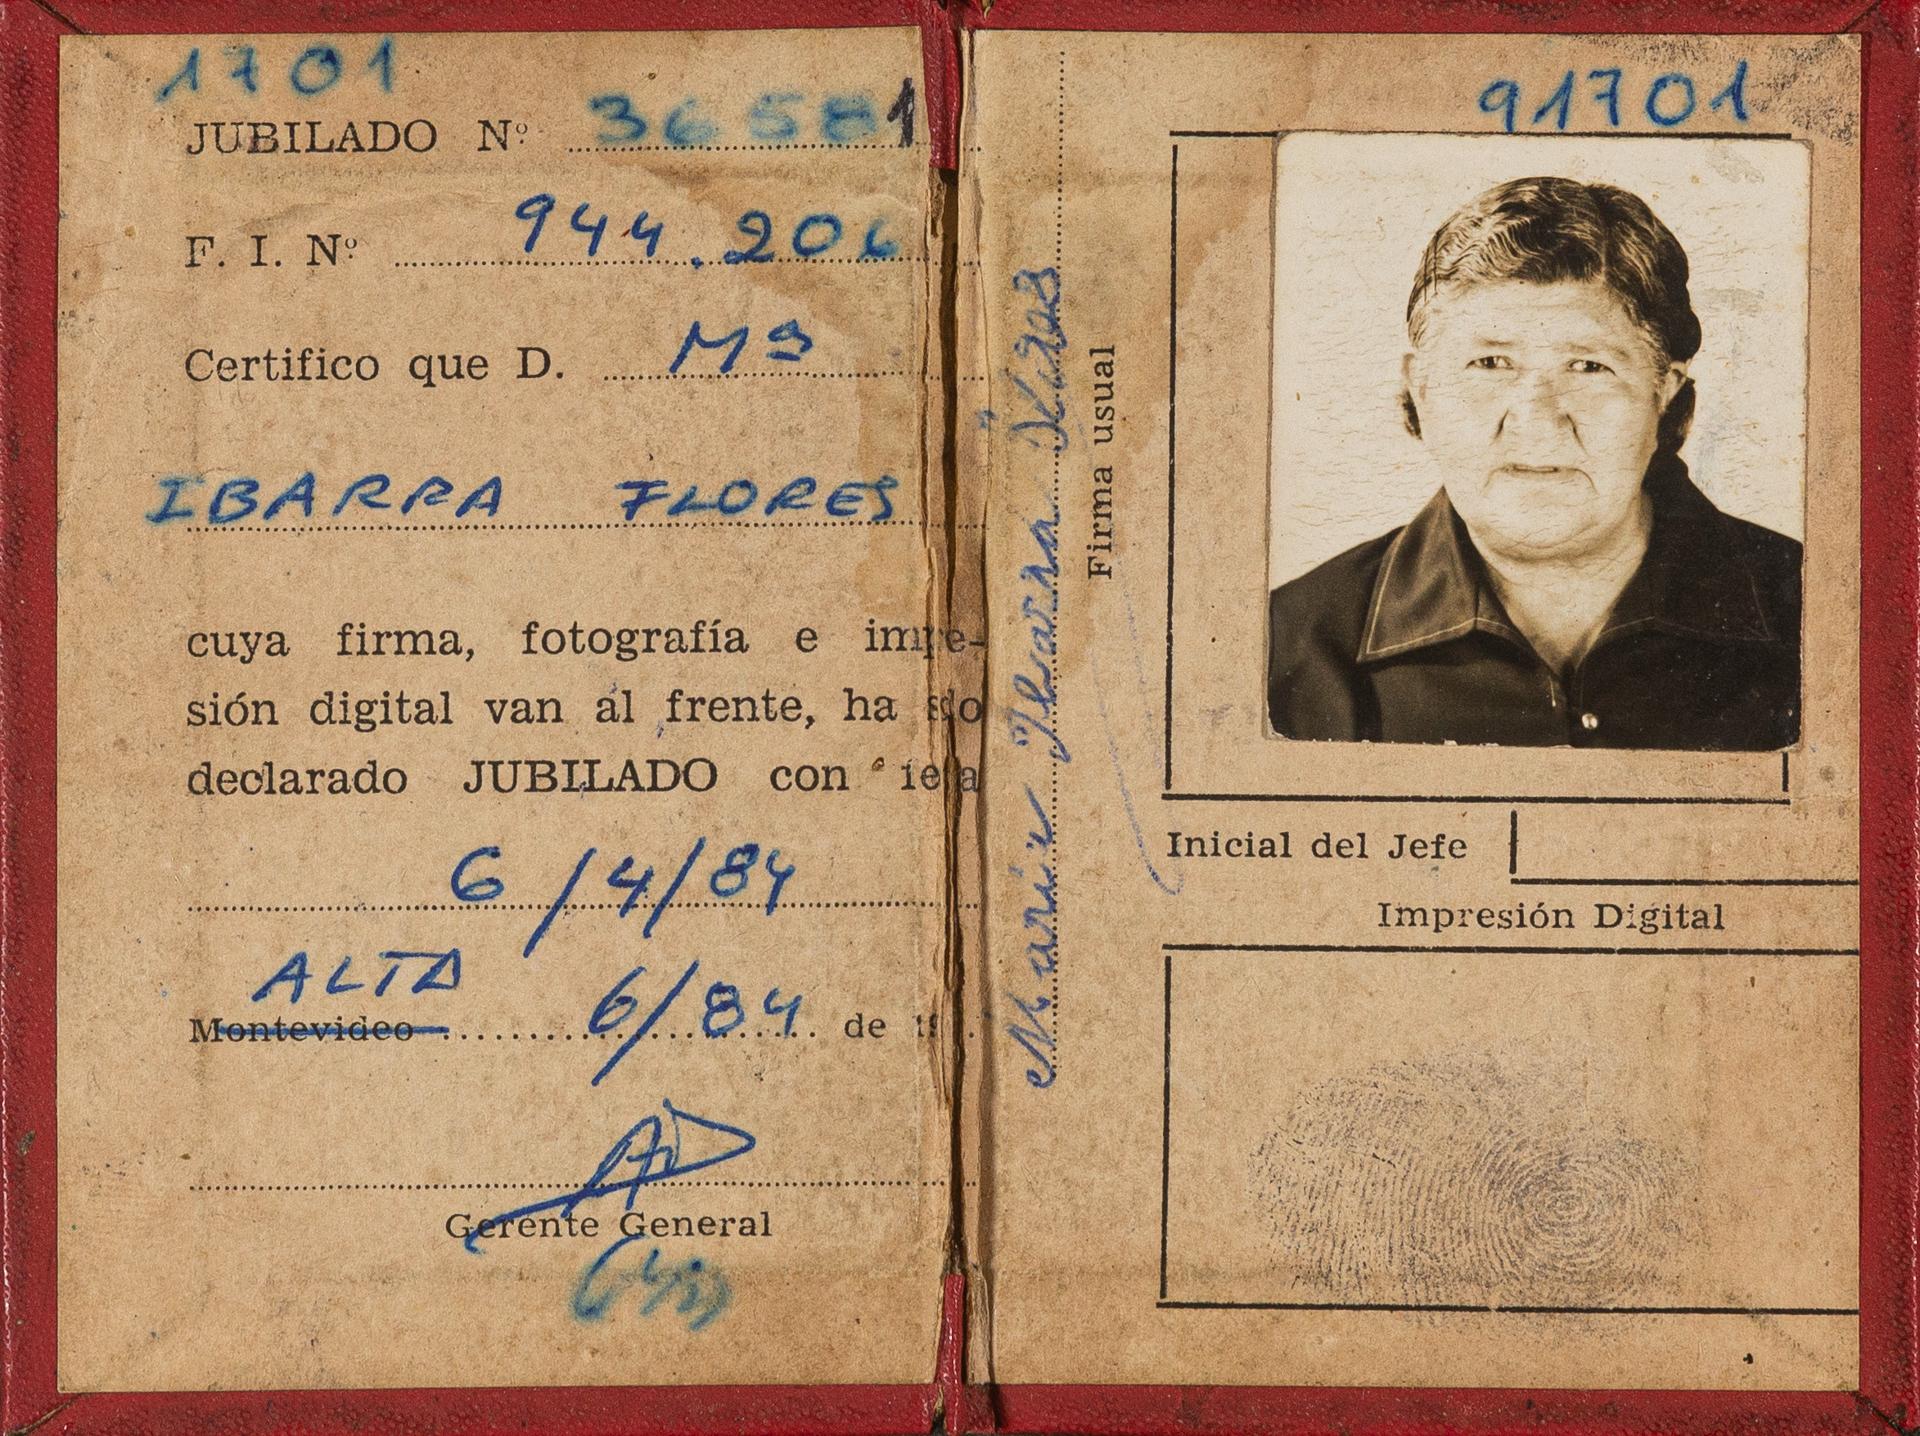 1701
JUBILADO Nº 36581
F. I. Nº 944.206
Certifico que D. Mª
IBARRA FLORES
cuya firma, fotografía e impre-
sión digital van al frente, ha sido
declarado JUBILADO con
6/4/84
ALTA
Montevideo 6/84 de 19
Gerente General
María Ybarra
Firma usual
91701
Inicial del Jefe
Impresión Digital